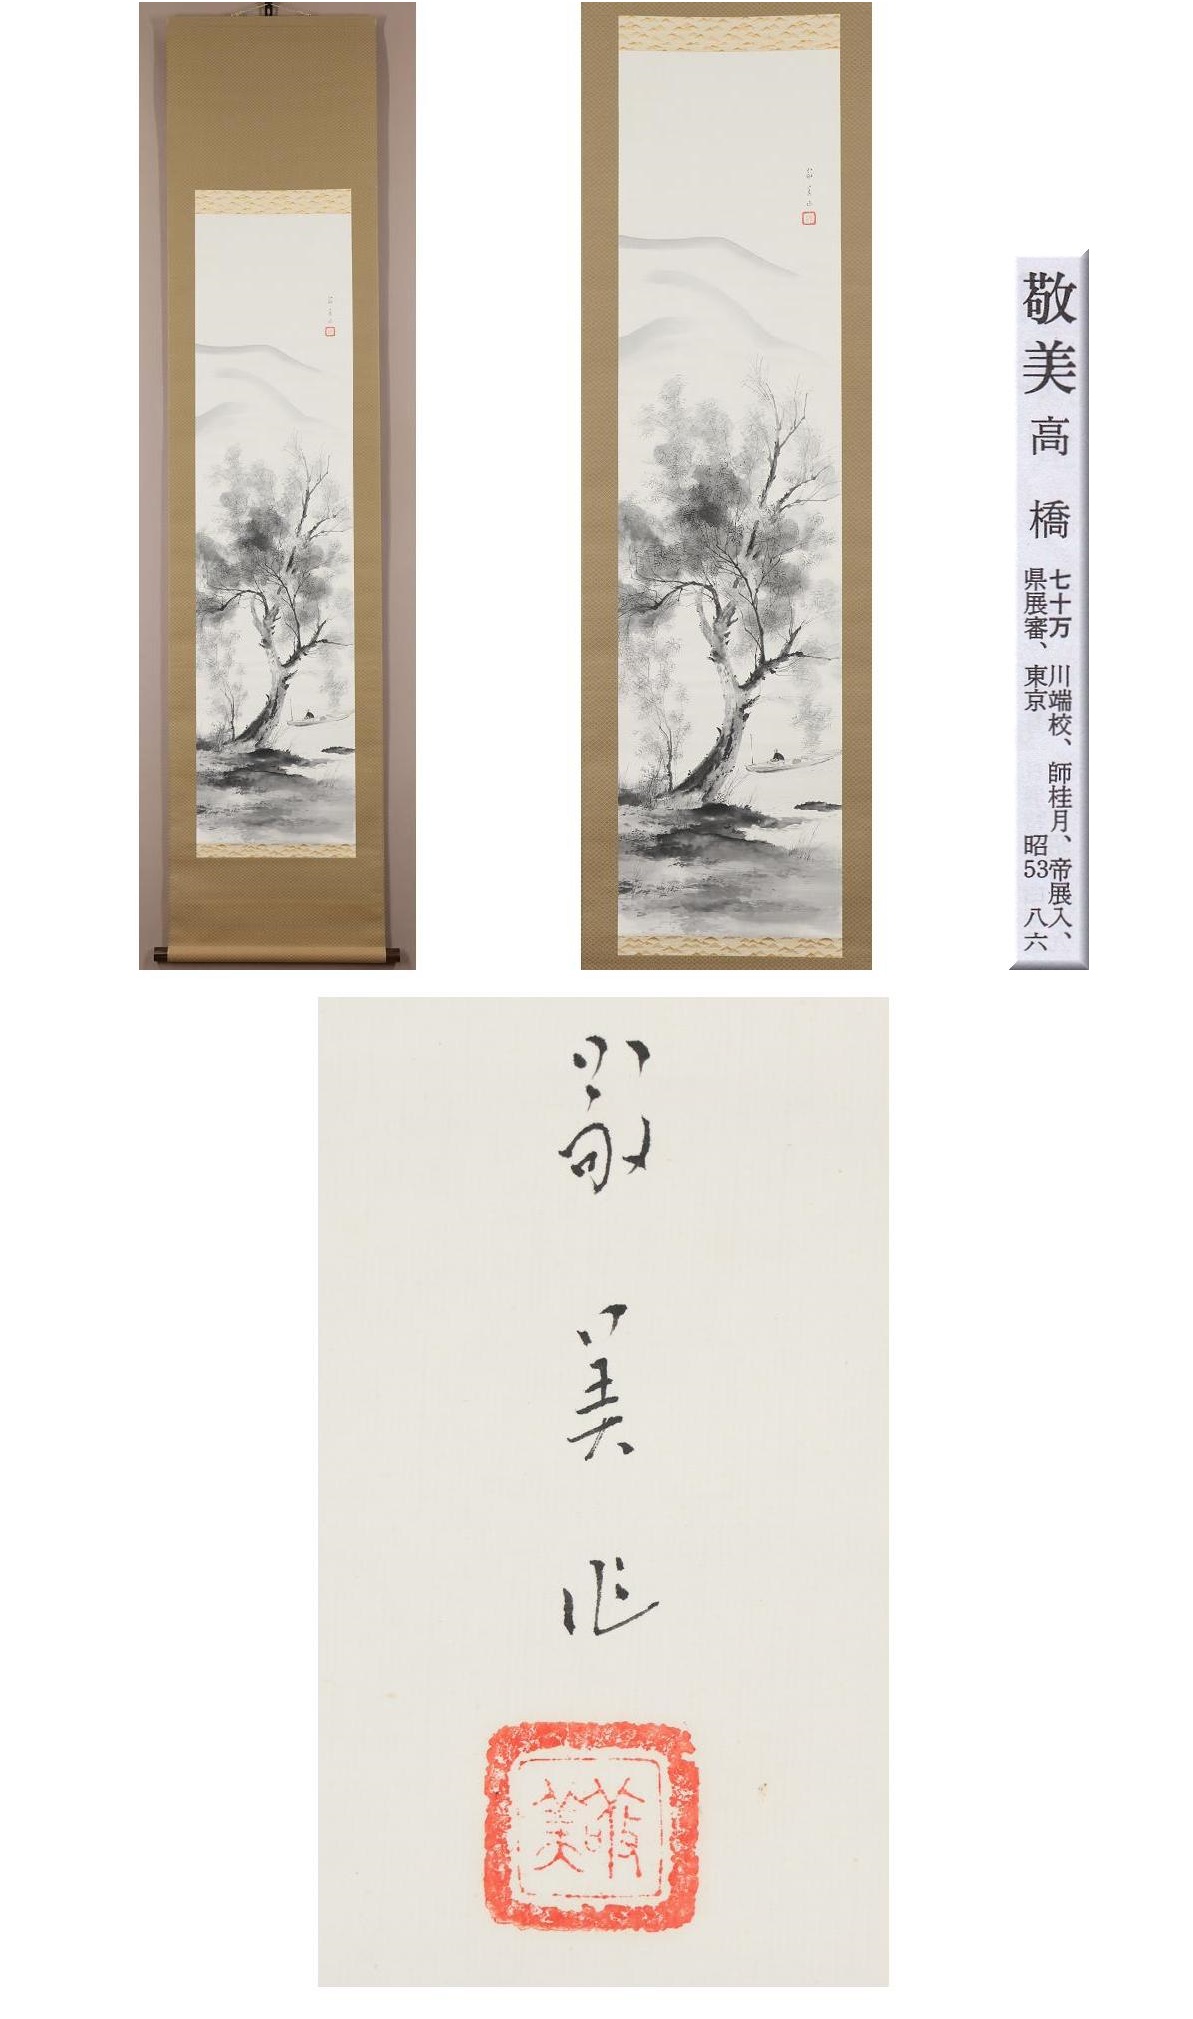 敬美作
敬美
敬美 高橋
七十万 川端校、師桂月、帝展入、
県展審、東京 昭53 八六
敬
美
作
敬美